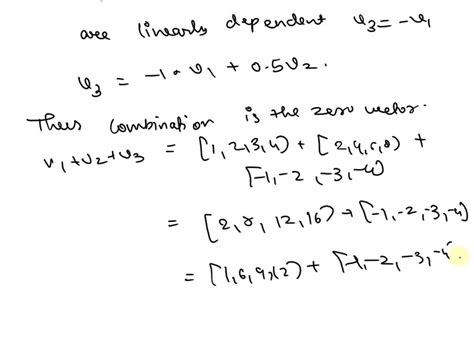 are linearly dependent v3 = -v1
v3 = -1 · v1 + 0.5v2.
Thus combination is the zero vector.
v1+v2+v3 = [1,2,3,4) + [2,4,6,8) +
[-1,-2,-3,-4)
= [2,8,12,16) + [-1,-2,-3,-4)
= [1,6,9,12) + [-1,-2,-3,-4)